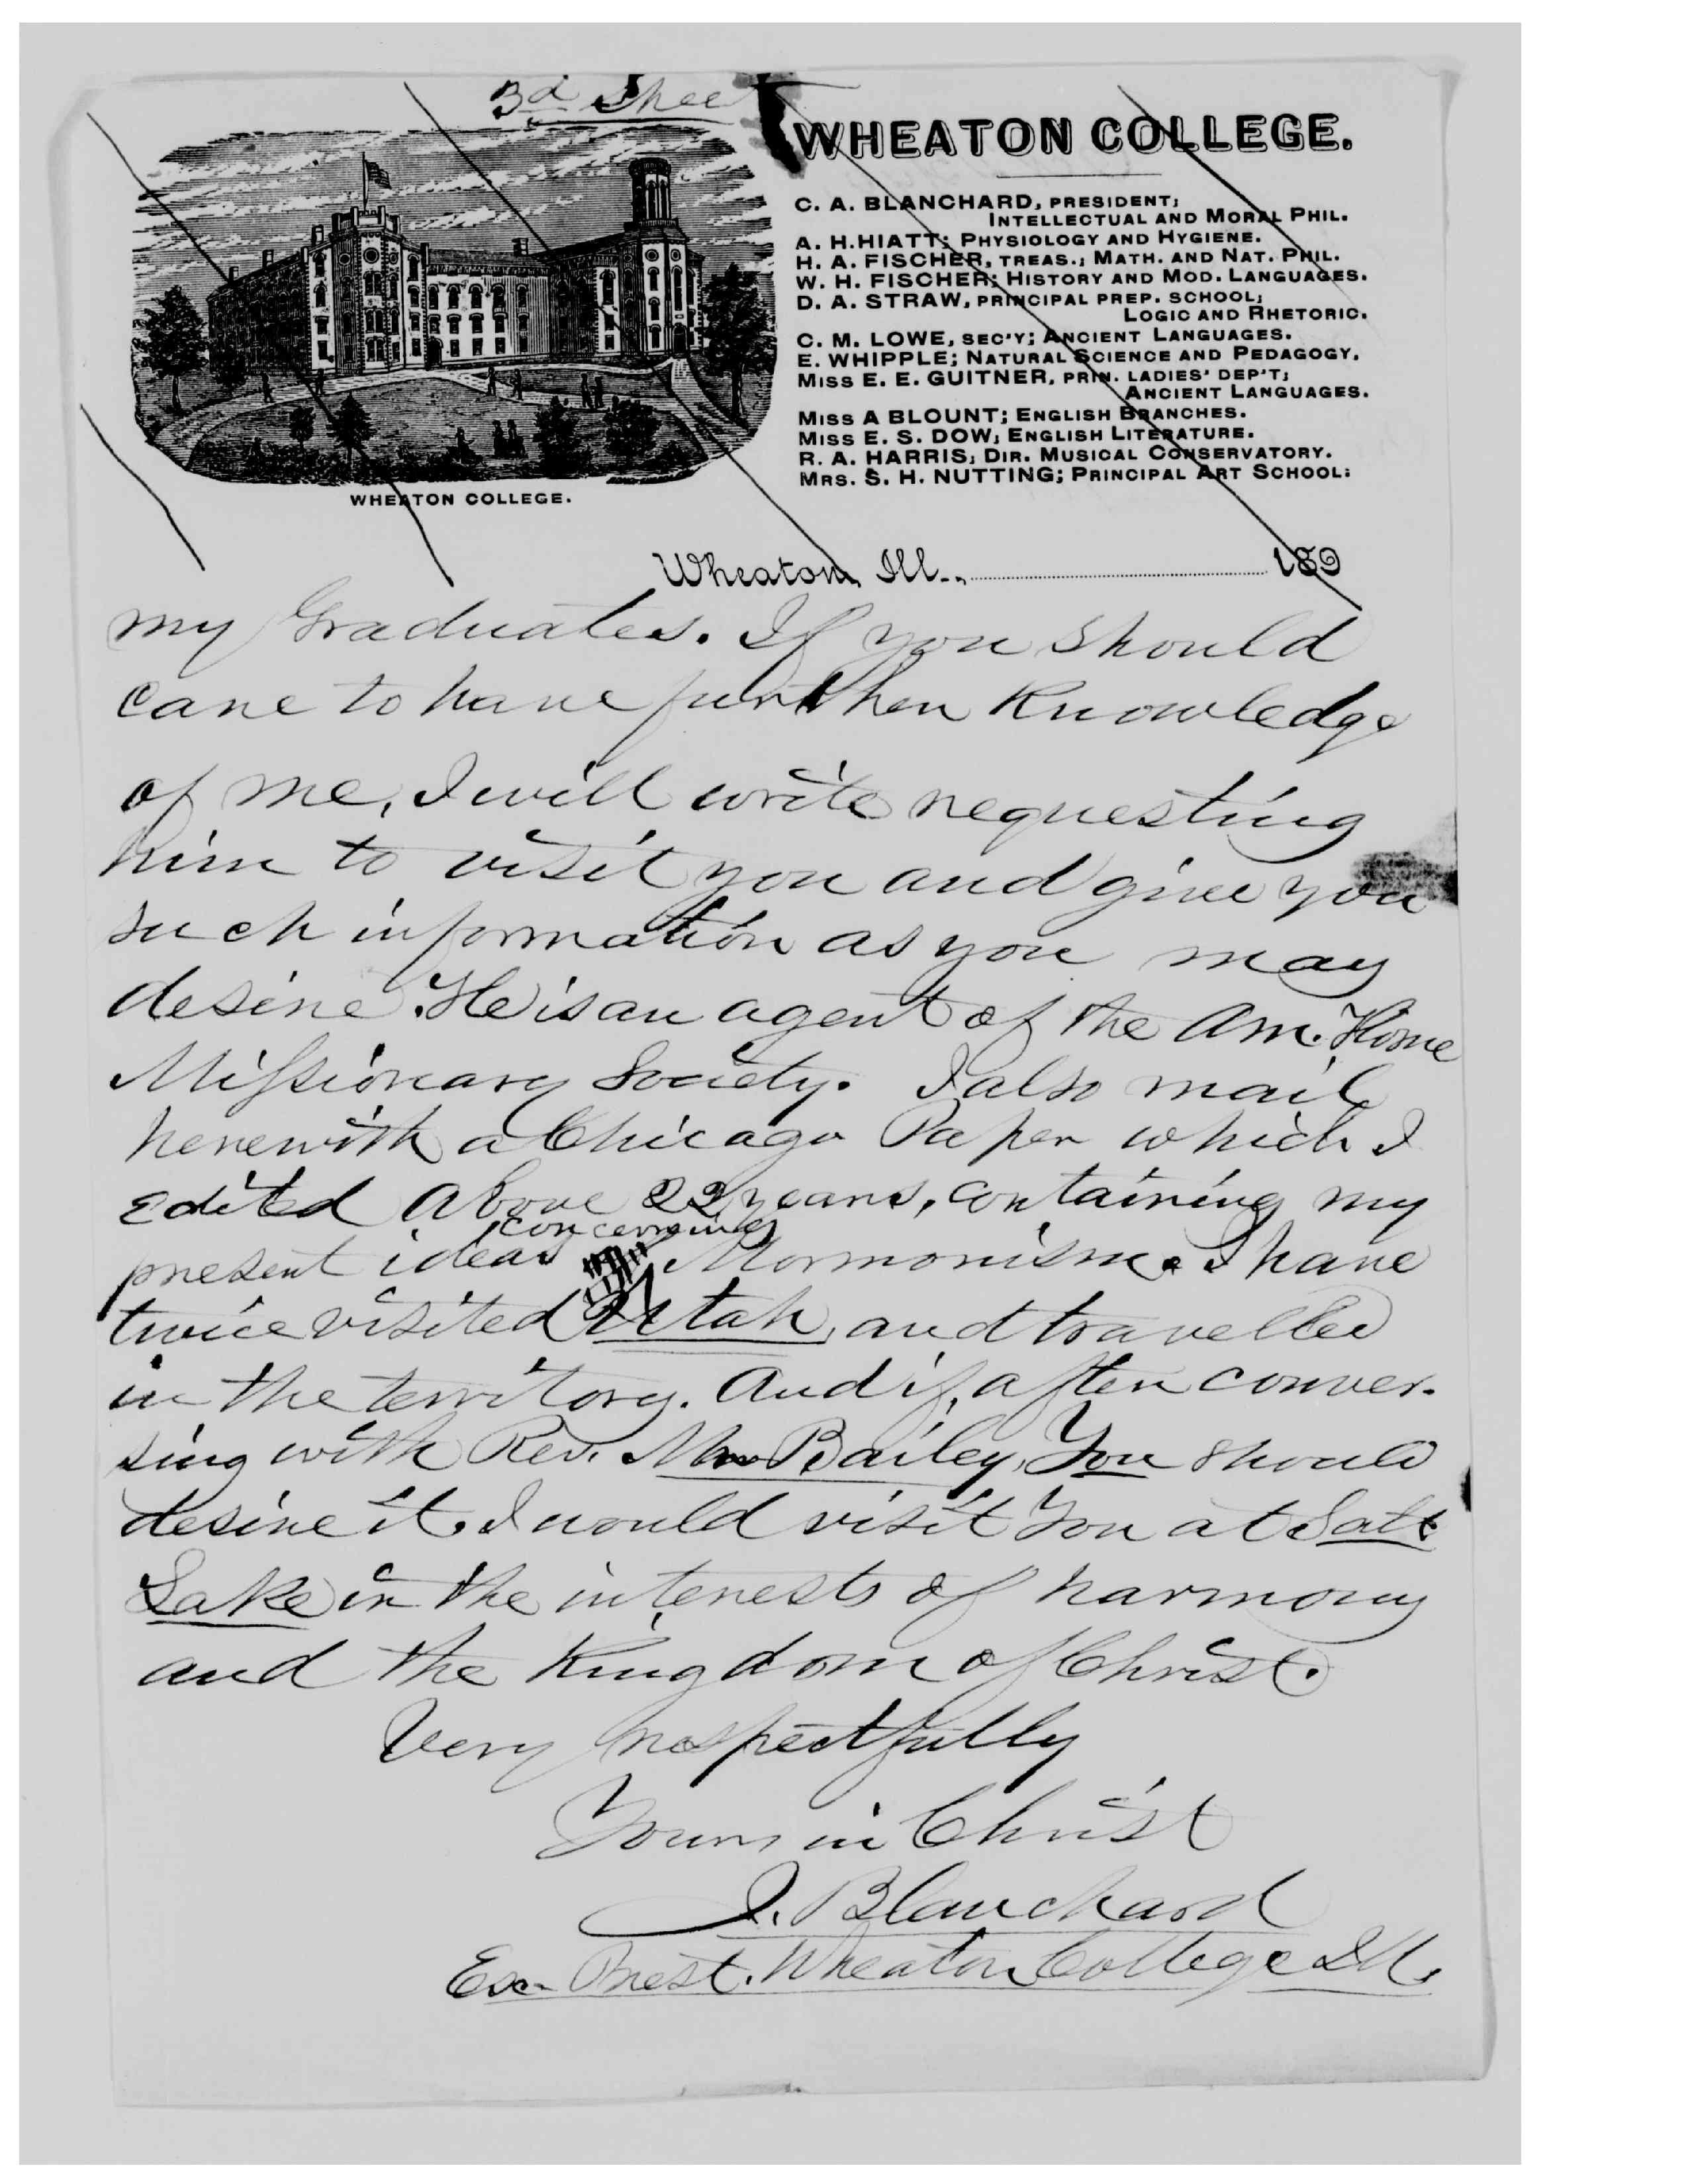 3d Sheet
WHEATON COLLEGE.
C. A. BLANCHARD, PRESIDENT;
INTELLECTUAL AND MORAL PHIL.
A. H. HIATT; PHYSIOLOGY AND HYGIENE.
H. A. FISCHER, TREAS.; MATH. AND NAT. PHIL.
W. H. FISCHER; HISTORY AND MOD. LANGUAGES.
D. A. STRAW, PRINCIPAL PREP. SCHOOL;
LOGIC AND RHETORIC.
C. M. LOWE, SEC'Y; ANCIENT LANGUAGES.
E. WHIPPLE; NATURAL SCIENCE AND PEDAGOGY.
MISS E. E. GUITNER, PRIN. LADIES' DEP'T;
ANCIENT LANGUAGES.
MISS A BLOUNT; ENGLISH BRANCHES.
MISS E. S. DOW; ENGLISH LITERATURE.
R. A. HARRIS; DIR. MUSICAL CONSERVATORY.
MRS. S. H. NUTTING; PRINCIPAL ART SCHOOL:
WHEATON COLLEGE.
Wheaton, Ill., 189
my Graduates. If you should
care to have further Knowledge
of me, I will write requesting
him to visit you and give you
such information as you may
desire. He is an agent of the Am. Home
Missionary Society. I also mail
herewith a Chicago Paper which I
edited above 22 years, containing my
present ideas concerning Mormonism. I have
twice visited Utah, and travelled
in the territory. And if, after conver-
sing with Rev. Mr Bailey, You should
desire it, I would visit You at Salt
Lake in the interests of harmony
and the Kingdom of Christ.
Very respectfully
Yours in Christ
J. Blanchard
Ex- Prest. Wheaton College Ill.